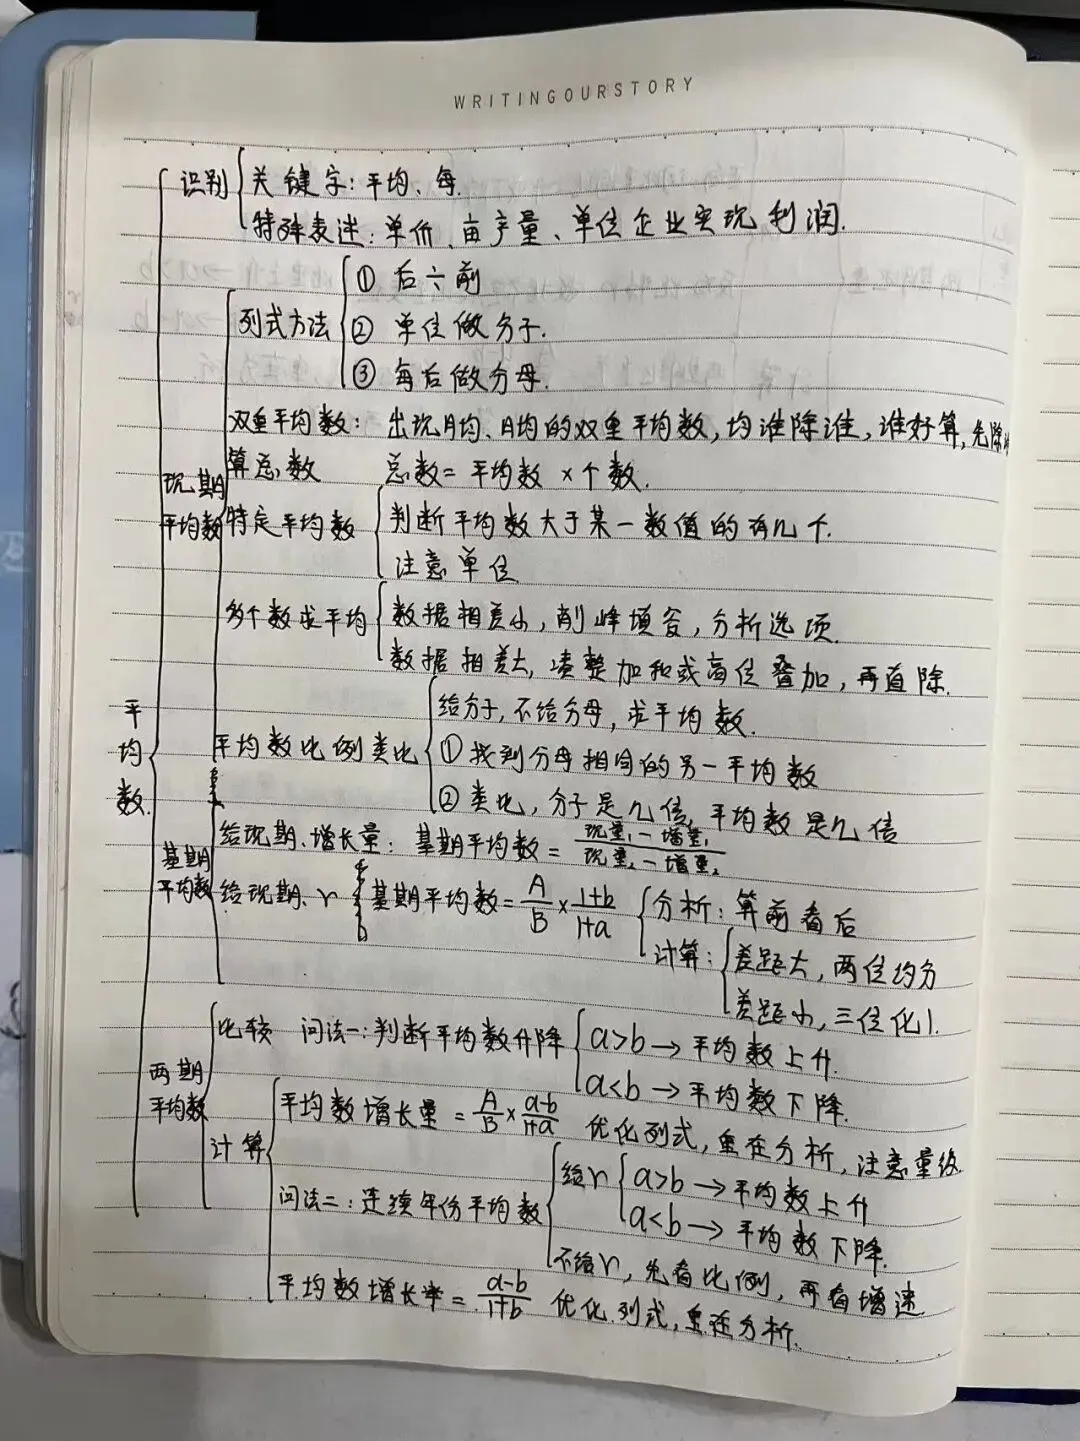 WRITINGOURSTORY
识别 关键字：平均、每.
特殊表述：单价、亩产量、单位企业实现利润.
① 后÷前
列式方法 ② 单位做分子.
③ 每后做分母.
双重平均数：出现月均、日均的双重平均数，均谁除谁，谁好算，先除
算总数 总数=平均数×个数.
现期平均数 特定平均数 判断平均数大于某一数值的有几个.
注意单位
多个数求平均 数据相差小，削峰填谷，分析选项.
数据相差大，凑整加和或高位叠加，再直除.
给分子，不给分母，求平均数.
平均数 平均数比例类比 ① 找到分母相同的另一平均数
② 类比，分子是几倍，平均数是几倍
给现期、增长量：基期平均数=现量₁-增量₁/现量₂-增量₂
基期平均数 给现期、r 基期平均数=A/B×1+b/1+a 分析：算前看后
计算：差距大，两位约分
差距小，三位化1.
比较 问法一：判断平均数升降 a>b→平均数上升.
两期平均数 a<b→平均数下降.
计算 平均数增长量=A/B×a-b/1+a 优化列式，重在分析，注意量级.
给r a>b→平均数上升
问法二：连续年份平均数 a<b→平均数下降.
不给r，先看比例，再看增速
平均数增长率=a-b/1+b 优化列式，重在分析.